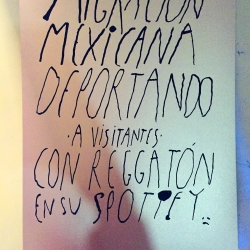 MIGRACIÓN
MEXICANA
DEPORTANDO
· A VISITANTES·
CON REGGATÓN
EN SU SPOTIFY :(